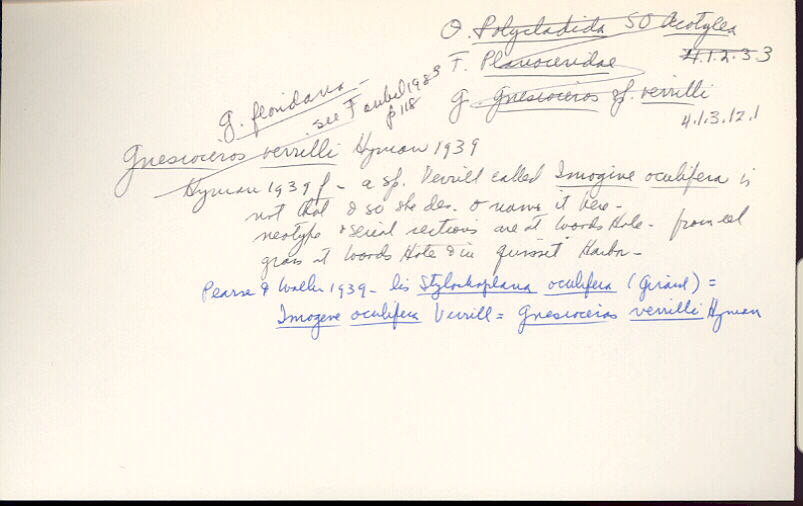 O. Polycladida SO Acotylea
4.1.2.3.3
F. Planoceridae
G. Gnesioceros sp. verrilli
4.1.3.12.1
G. floridana –
see Faubel 1983
p 118
Gnesioceros verrilli Hyman 1939
Hyman 1939 f – a sp. Verrill called Imogine oculifera is
not that & so she des. & names it here –
neotype & serial sections are at Woods Hole – from eel
grass at Woods Hole & in Quisset Harbor –
Pearse & Walker 1939 – lis Stylochoplana oculifera (Girard) =
Imogene oculifera Verrill = Gnesioceros verrilli Hyman